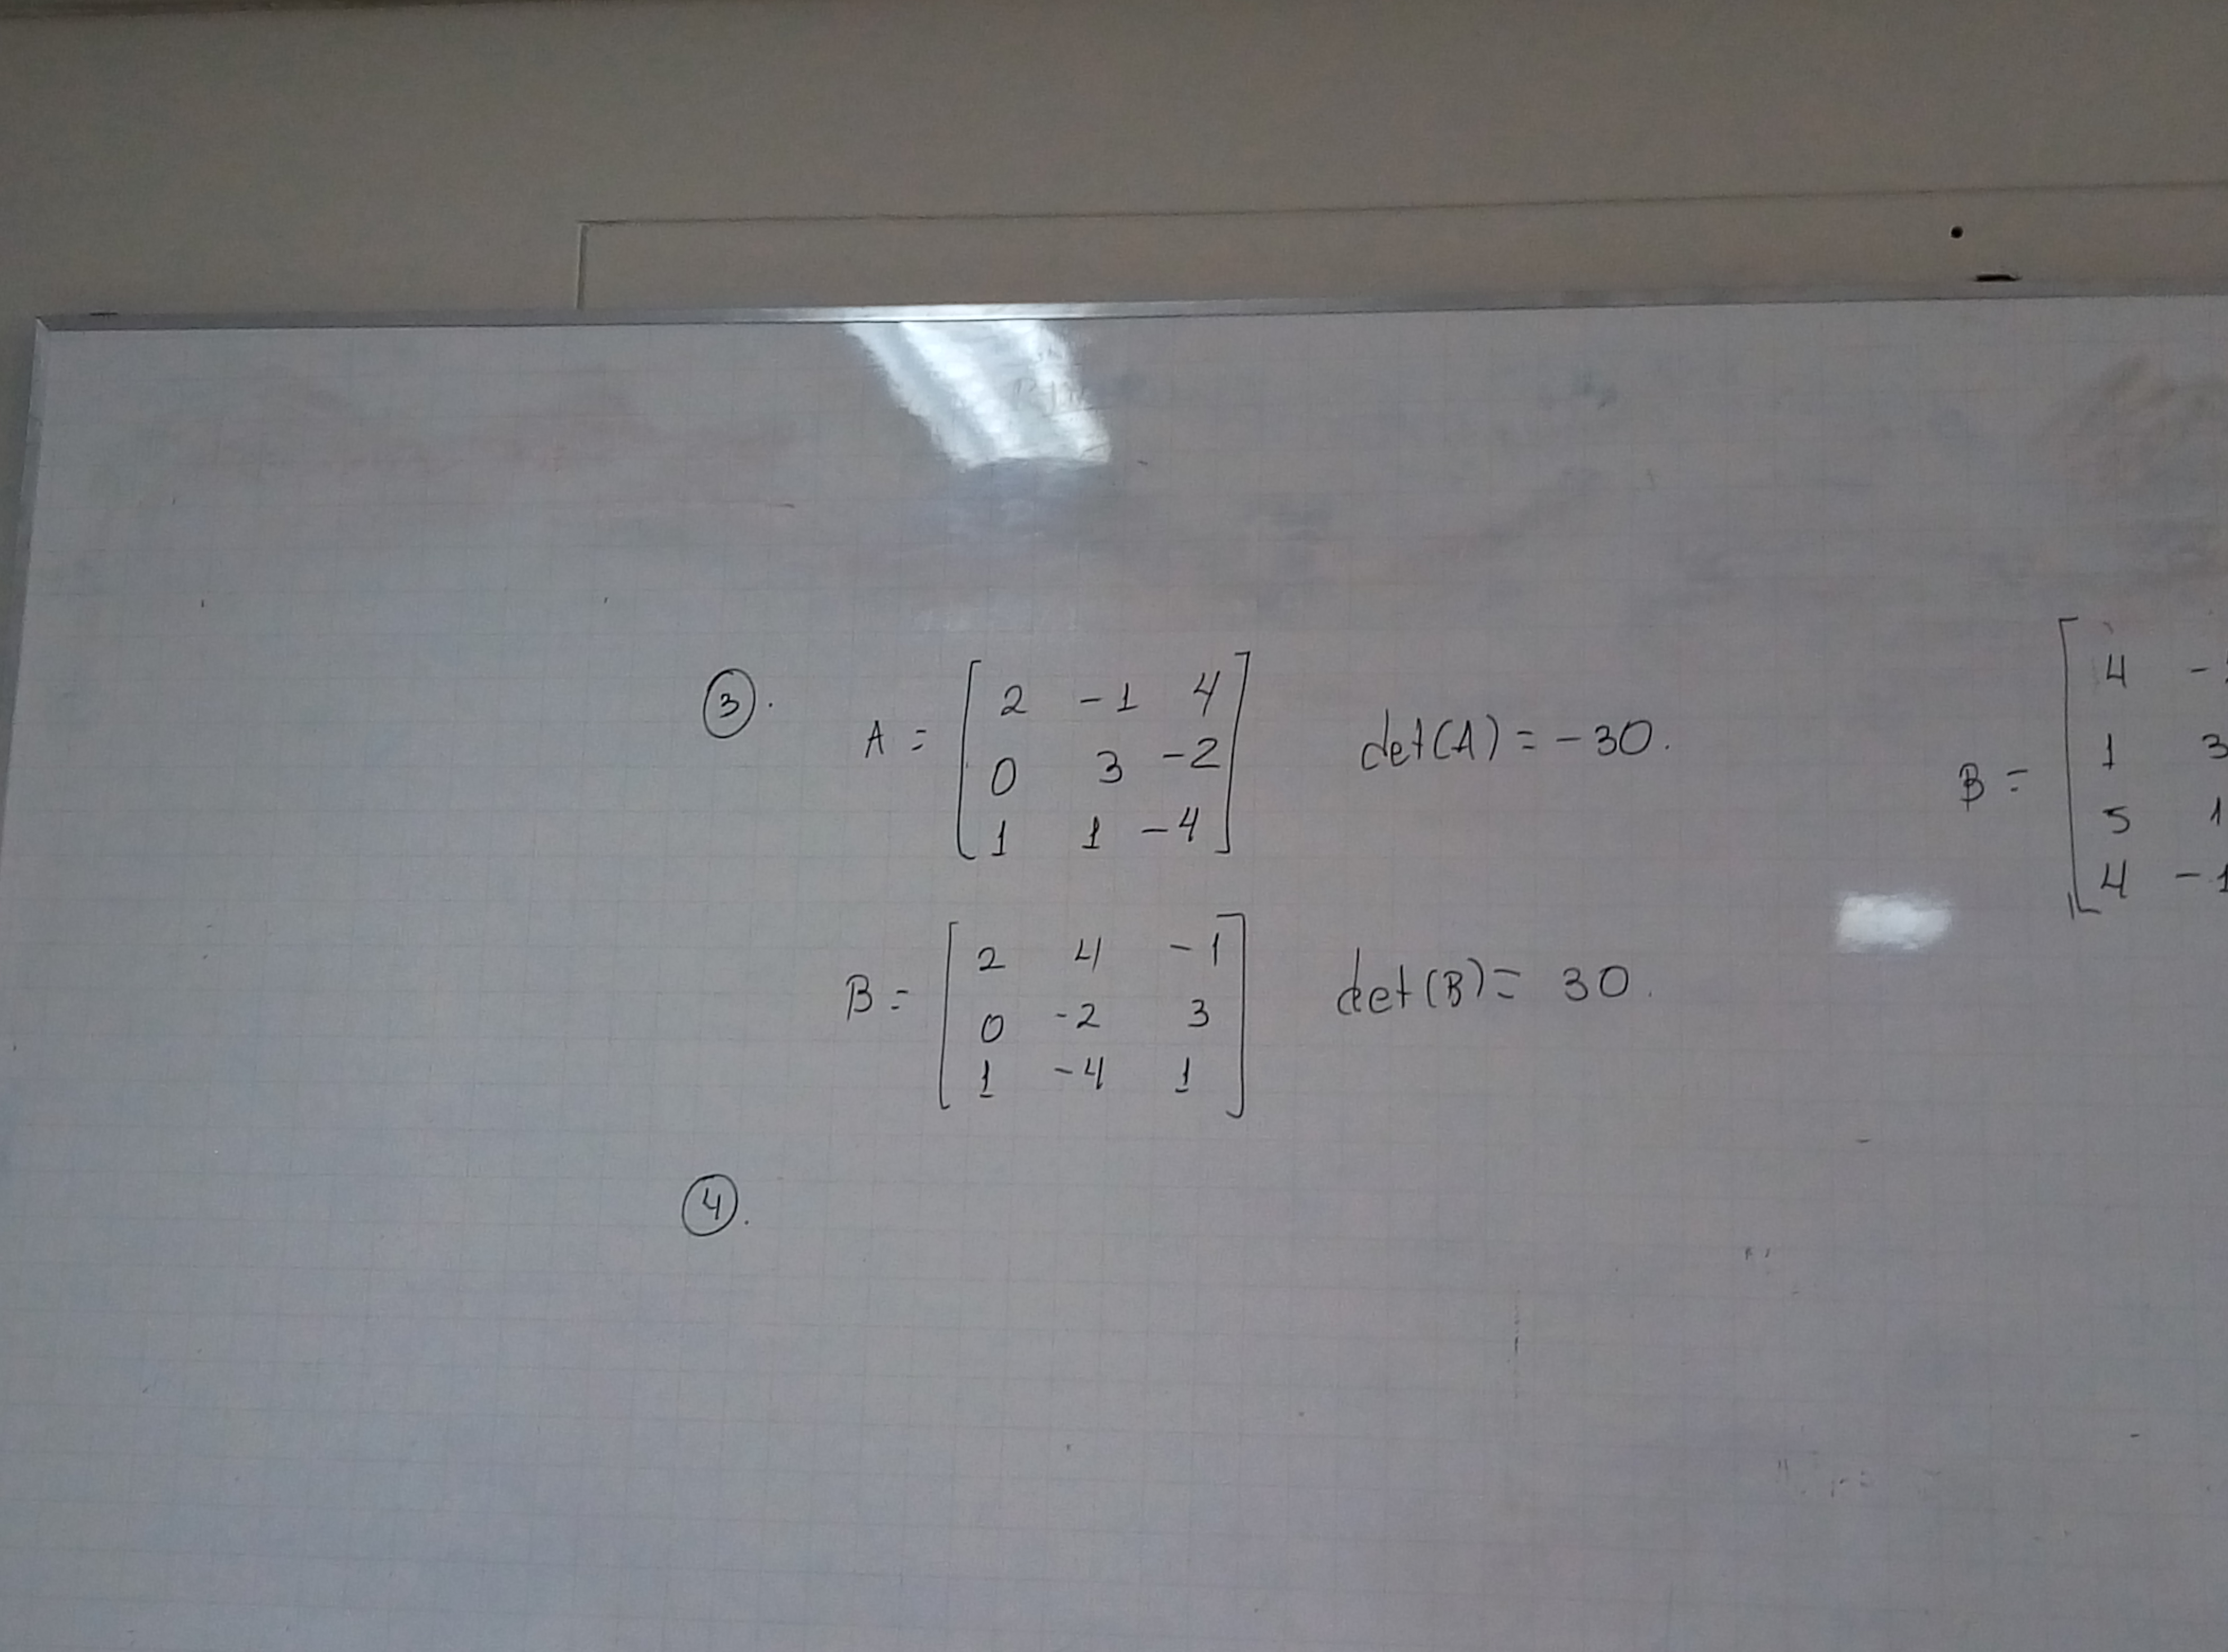 ③. A = [ 2 -1 4
0 3 -2
1 1 -4 ] det(A) = -30.
B = [ 2 4 -1
0 -2 3
1 -4 1 ] det(B) = 30.
④.
B = [ 4 -
1 3
5 1
4 -1